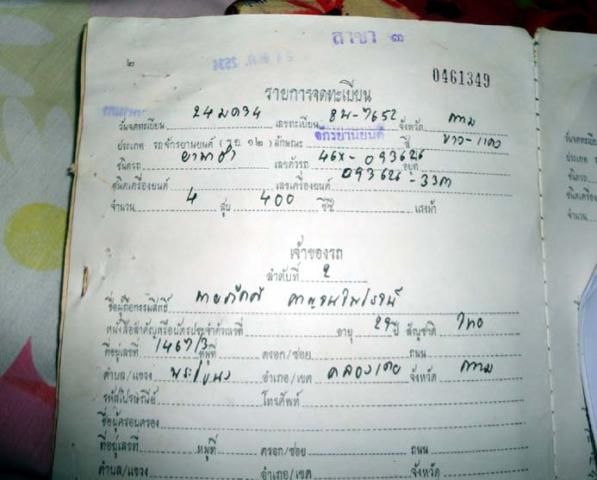 สาขา ๓
๒
0461349
รายการจดทะเบียน
วันจดทะเบียน 24 มค 34 เลขทะเบียน 8น-7652 จังหวัด กทม
ประเภท รถจักรยานยนต์ (รย. ๑๒) ลักษณะ จักรยานยนต์ สี ขาว-แดง
ชื่อรถ ยามาฮ่า เลขตัวรถ 46X-093626 อยู่ที่
ชนิดเครื่องยนต์ เลขเครื่องยนต์ 093626-33ต
จำนวน 4 สูบ 400 ซีซี แรงม้า
เจ้าของรถ
ลำดับที่ 2
ชื่อผู้ถือกรรมสิทธิ์
หนังสือสำคัญหรือบัตรประจำตัวเลขที่ อายุ 29 ปี สัญชาติ ไทย
ที่อยู่เลขที่ 1467/3 หมู่ที่ ตรอก/ซอย ถนน
ตำบล/แขวง อำเภอ/เขต คลองเตย จังหวัด กทม
รหัสไปรษณีย์ โทรศัพท์
ชื่อผู้ครอบครอง
ที่อยู่เลขที่ หมู่ที่ ตรอก/ซอย ถนน
ตำบล/แขวง อำเภอ/เขต จังหวัด